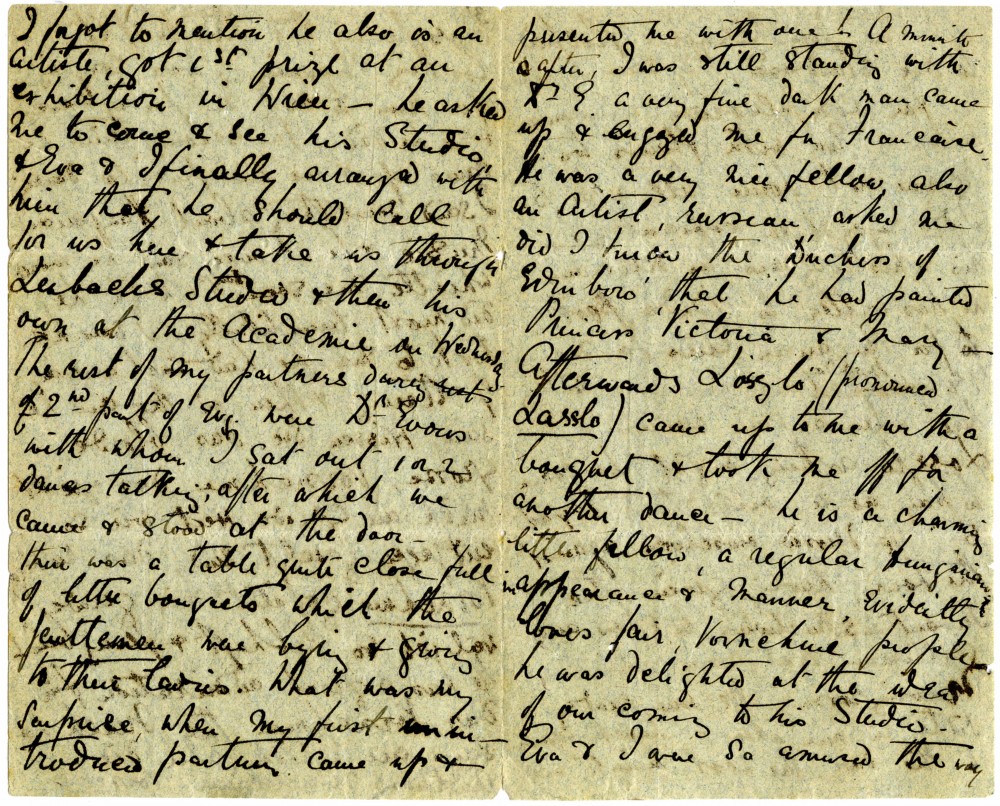 I forgot to mention he also is an
artiste, got 1st prize at an
exhibition in Wien – he asked
me to come & see his Studio,
& Eva & I finally arranged with
him that he should call
for us here & take us through
Lenbachs Studio & then his
own at the Academie on Wednesday
The rest of my partners during rest
of 2nd part of Evg. were Dr Evans
with whom I sat out 1 or 2
dances talking, after which we
came & stood at the door –
there was a table quite close full
of little bouquets which the
gentlemen were bying & giving
to their ladies what was my
surprise, when my first unin-
troduced partner came up &
presented me with one! A minute
after, I was still standing with
Dr E a very fine dark man came
up & engaged me for Francaise.
He was a very nice fellow, also
an Artist, russian, asked me
did I know the Duchess of
Edinboro' that he had painted
Princess Victoria & Mary –
Afterwards László (pronounced
Lasslo) came up to me with a
bouquet & took me off for
another dance – he is a charming
little fellow, a regular Hungarian
in appearance & manner, Evidently
loves fair, Vornehme people
he was delighted at the idea
of our coming to his Studio.
Eva & I were so amused the way